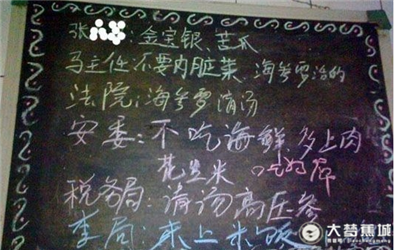 张 ：金宝银、苦瓜
马主任不要内脏菜 海参要活的
法院：海参要清汤
安委：不吃海鲜,多上肉
花生米
税务局：清汤高压参
李局：来上米饭
蕉城